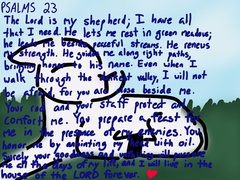 PSALMS 23
The Lord is my shepherd; I have all
that I need. He lets me rest in green meadows;
he leads me beside peaceful streams. He renews
my strength. He guides me along right paths,
bringing honor to his name. Even when I
walk through the darkest valley, I will not
be afraid, for you are close beside me.
Your rod and your staff protect and
comfort me. You prepare a feast for
me in the presence of my enemies. You
honor me by anointing my head with oil.
Surely your goodness and unfailing will pursue
me all the days of my life, and I will live in the
house of the LORD forever.